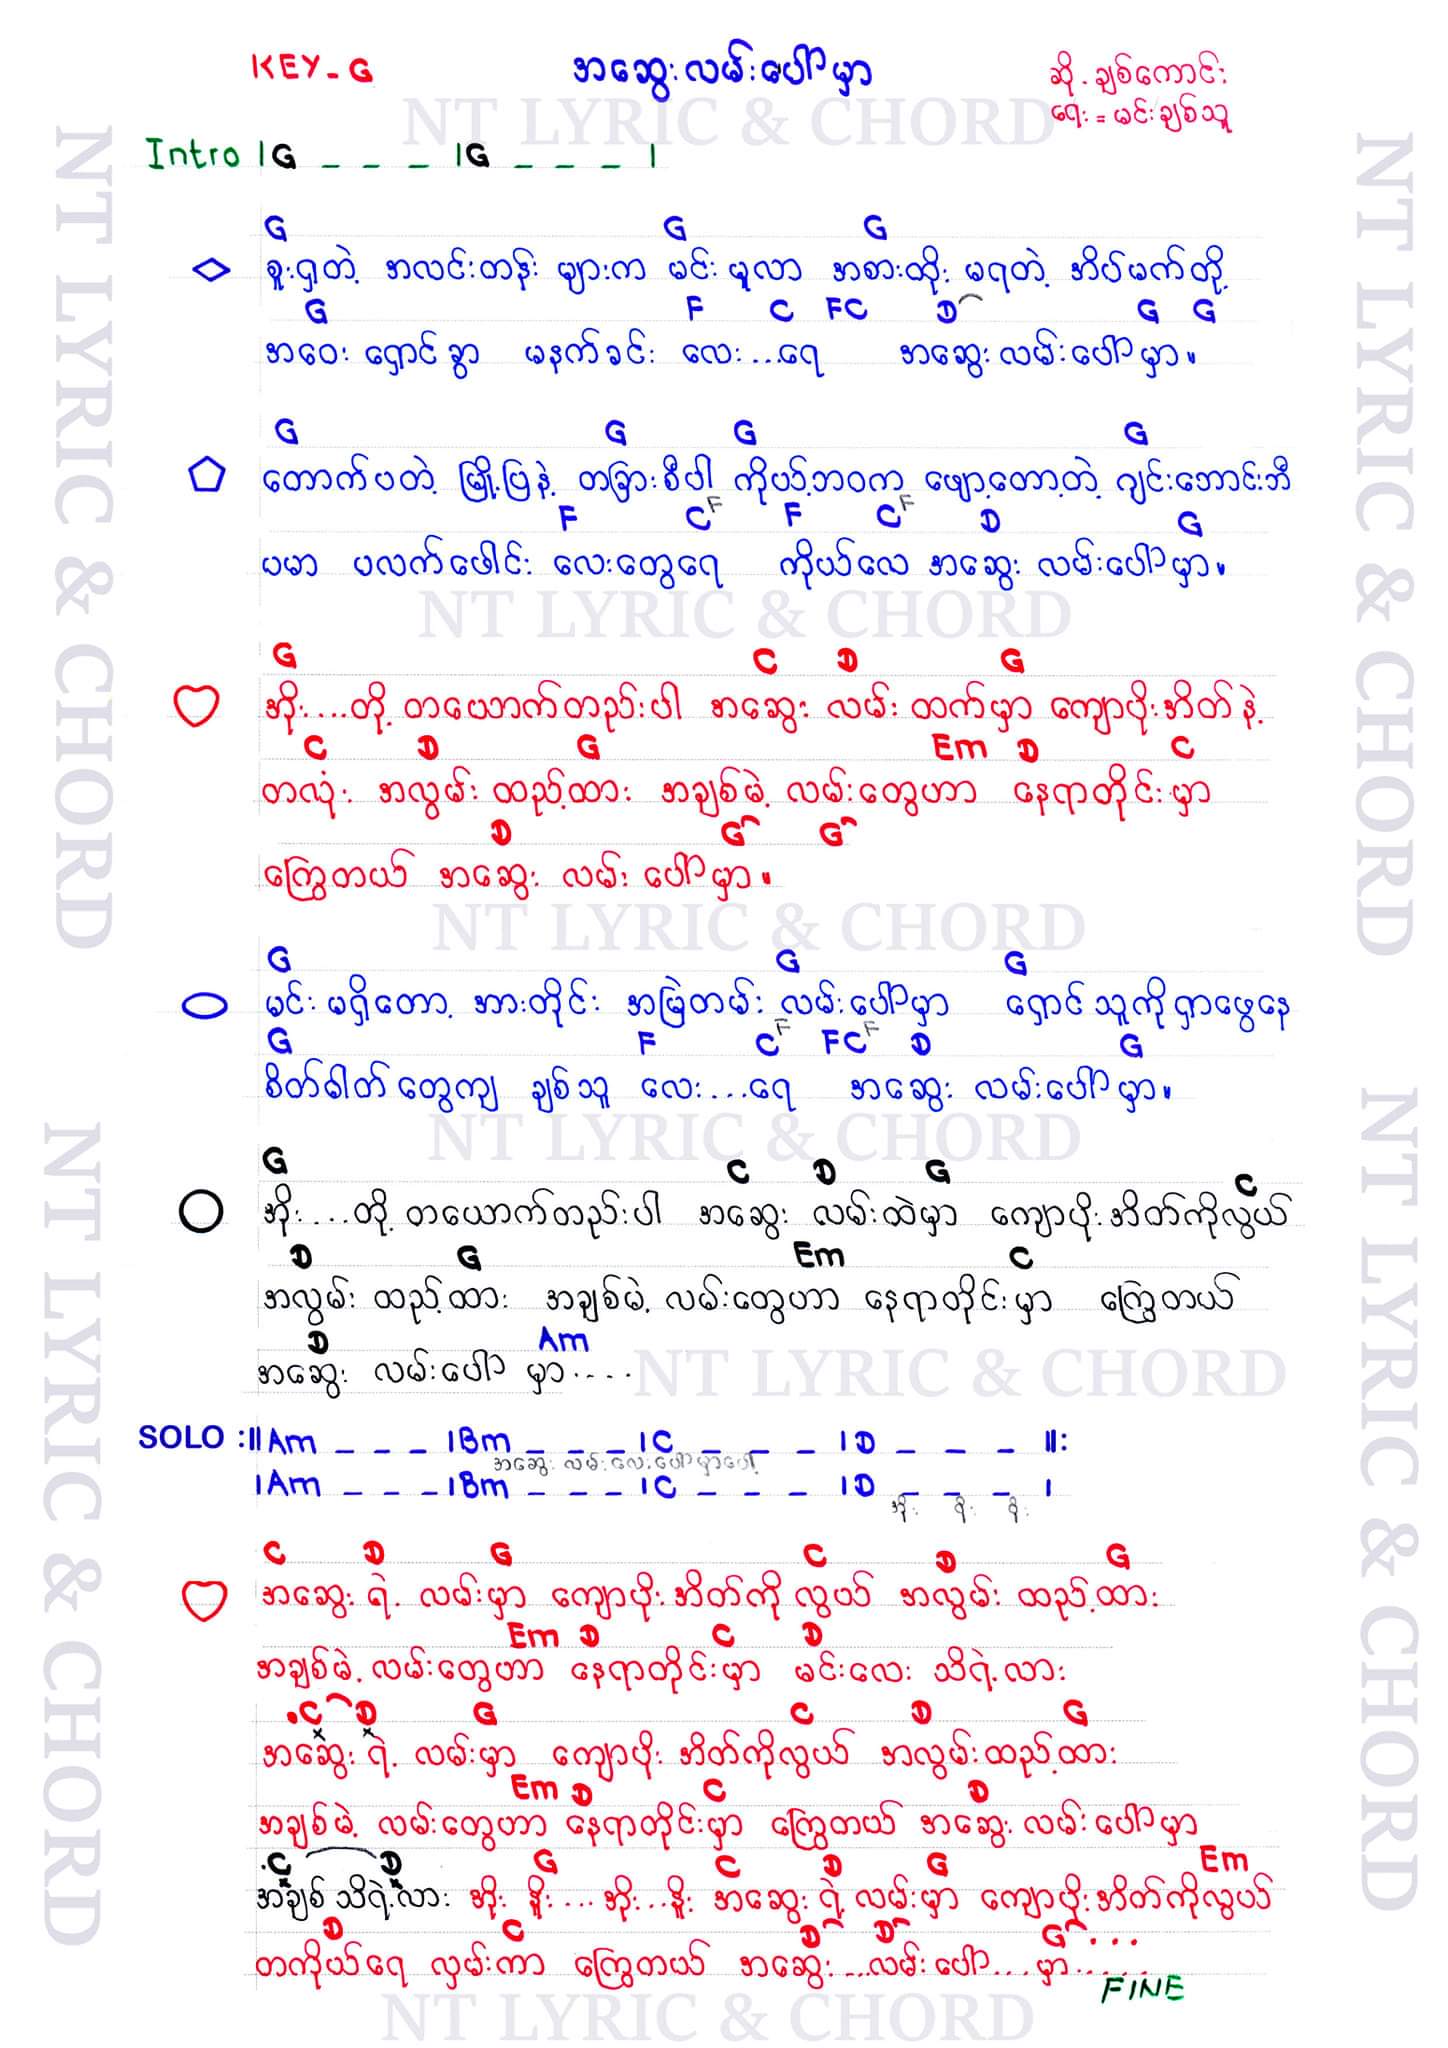 KEY - G
အဆွေးလမ်းပေါ်မှာ
ဆို - ချစ်ကောင်း
ရေး = မင်းချစ်သူ
NT LYRIC & CHORD
Intro | G _ _ _ | G _ _ _ |
G G G
စူးရှတဲ့ အလင်းတန်း များက မင်း မူလာ အစားထိုး မရတဲ့ အိပ်မက်တို့
G F C F C D G G
အဝေး ရှောင်ခွာ မနက်ခင်း လေး...ရေ အဆွေးလမ်းပေါ်မှာ။
G G G G
တောက်ပတဲ့ မြို့ပြနဲ့ တခြားစီပါ ကိုယ့်ဘဝက ဖျော့တော့တဲ့ ဂျင်းဘောင်းဘီ
F C F F C F D G
ပမာ ပလက်ဖေါင်း လေးတွေရေ ကိုယ်လေ အဆွေး လမ်းပေါ်မှာ။
NT LYRIC & CHORD
G C D G
အိုး....တို့ တယောက်တည်းပါ အဆွေး လမ်း ထက်မှာ ကျောပိုးအိတ်နဲ့
C D G Em D C
တလုံး အလွမ်း ထည့်ထား အချစ်မဲ့ လမ်းတွေဟာ နေရာတိုင်းမှာ
D G G
ကြွေတယ် အဆွေး လမ်း ပေါ်မှာ။
NT LYRIC & CHORD
G G G
မင်း မရှိတော့ အားတိုင်း အမြဲတမ်း လမ်းပေါ်မှာ ရှောင်သူကိုရှာဖွေနေ
G F C F F C F D G
စိတ်ဓါတ်တွေကျ ချစ်သူ လေး...ရေ အဆွေး လမ်းပေါ်မှာ။
NT LYRIC & CHORD
G C D G C
အိုး....တို့ တယောက်တည်းပါ အဆွေး လမ်းထဲမှာ ကျောပိုးအိတ်ကိုလွယ်
D G Em C
အလွမ်း ထည့်ထား အချစ်မဲ့ လမ်းတွေဟာ နေရာတိုင်းမှာ ကြွေတယ်
D Am
အဆွေး လမ်းပေါ် မှာ....
NT LYRIC & CHORD
SOLO :|| Am _ _ _ | Bm _ _ _ | C _ _ _ | D _ _ _ ||:
အဆွေး လမ်းလေးပေါ်မှာပေါ့
| Am _ _ _ | Bm _ _ _ | C _ _ _ | D _ _ _ |
C D G C D G
အဆွေးရဲ့ လမ်းမှာ ကျောပိုးအိတ်ကို လွယ် အလွမ်း ထည့်ထား
Em D C D
အချစ်မဲ့ လမ်းတွေဟာ နေရာတိုင်းမှာ မင်းလေး သိရဲ့လား
C D G C D G
အဆွေးရဲ့ လမ်းမှာ ကျောပိုး အိတ်ကိုလွယ် အလွမ်းထည့်ထား
Em D C D
အချစ်မဲ့ လမ်းတွေဟာ နေရာတိုင်းမှာ ကြွေတယ် အဆွေးလမ်းပေါ်မှာ
C D G C D G Em
အချစ် သိရဲ့လား အိုး နိုး... အိုး...နိုး အဆွေးရဲ့ လမ်းမှာ ကျောပိုးအိတ်ကိုလွယ်
D C D D G ...
တကိုယ်ရေ လှမ်းကာ ကြွေတယ် အဆွေး...လမ်းပေါ်...မှာ......
FINE
NT LYRIC & CHORD
NT LYRIC & CHORD
NT LYRIC & CHORD
NT LYRIC & CHORD
NT LYRIC & CHORD